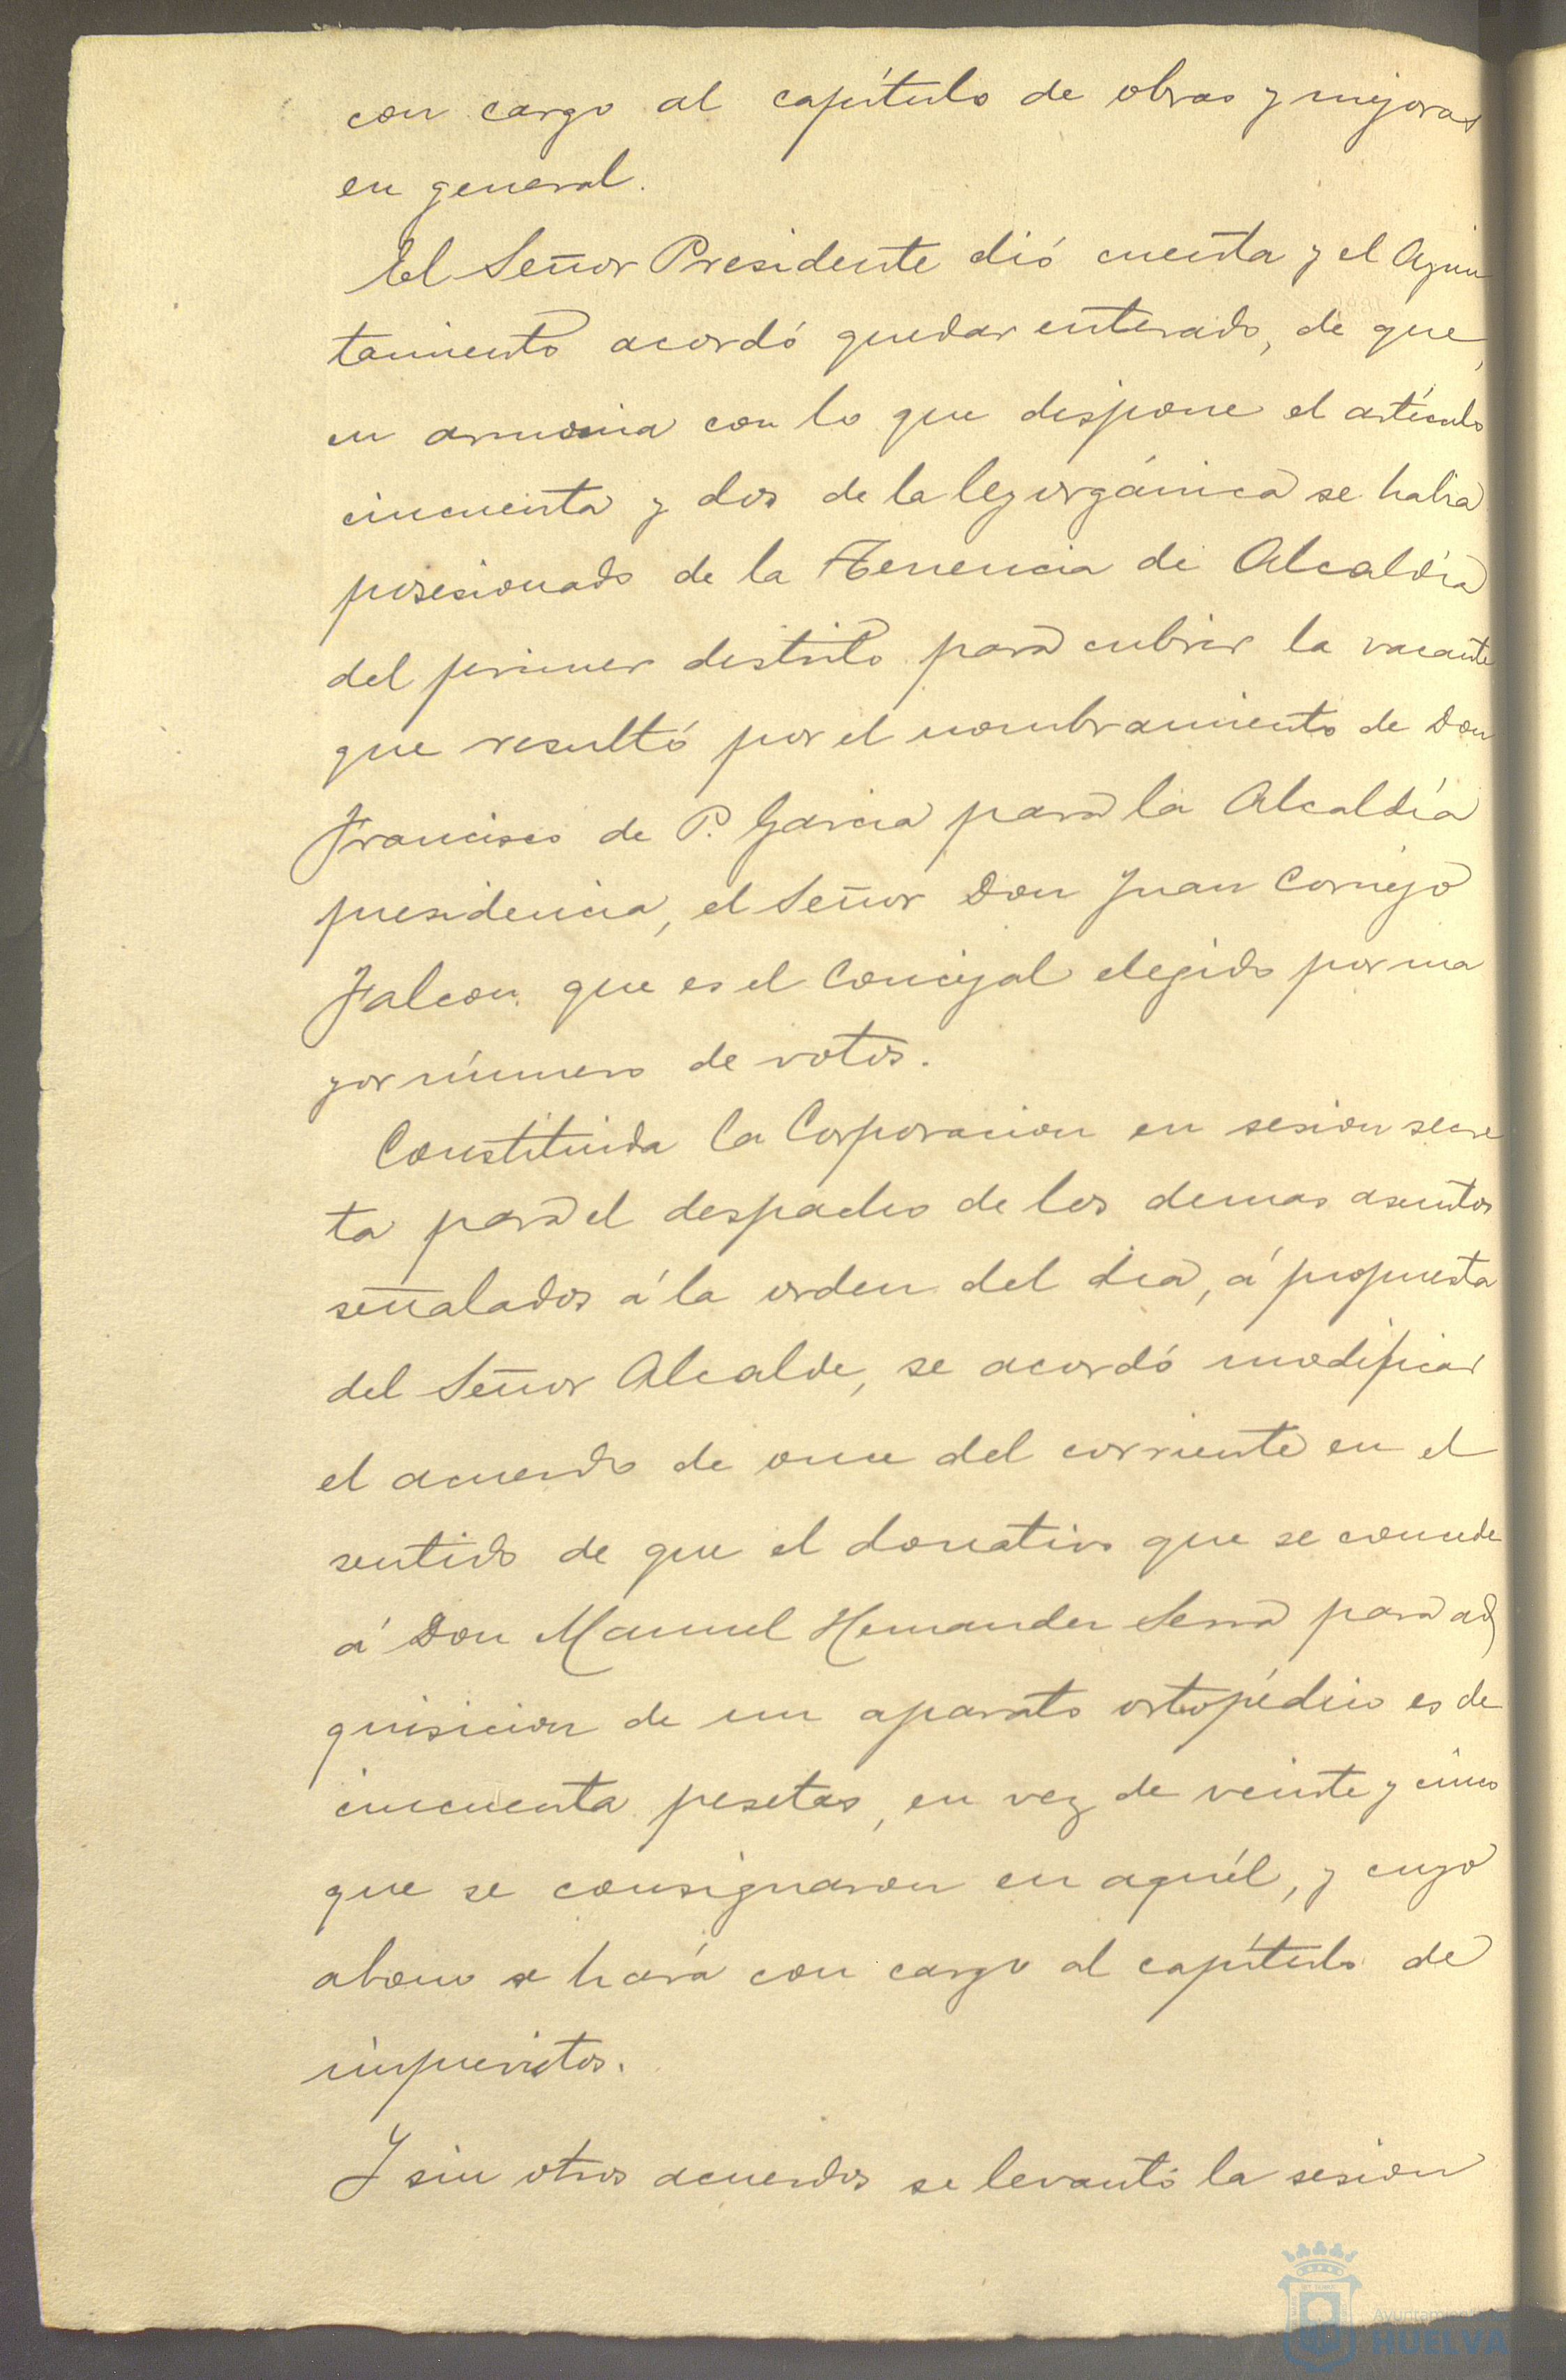 con cargo al capítulo de obras y mejoras
en general.
El Señor Presidente dió cuenta y el Ayun
tamiento acordó quedar enterado, de que,
en armonia con lo que dispone el artículo
cincuenta y dos de la ley orgánica se habia
posesionado de la Tenencia de Alcaldía
del primer distrito para cubrir la vacante
que resultó por el nombramiento de Don
Francisco de P. Garcia para la Alcaldía
presidencia, el Señor Don Juan Cornejo
Falcon que es el Concejal elegido por ma
yor número de votos.
Constituida la Corporacion en sesion secre
ta para el despacho de los demas asuntos
señalados á la orden del dia, á propuesta
del Señor Alcalde, se acordó modificar
el acuerdo de once del corriente en el
sentido de que el donativo que se concede
á Don Manuel Hernandez Serra para ad
quisicion de un aparato ortopédico es de
cincuenta pesetas, en vez de veinte y cinco
que se consignaron en aquél, y cuyo
abono se hará con cargo al capítulo de
imprevistos.
Y sin otros acuerdos se levantó la sesion
Ayuntamiento
HUELVA